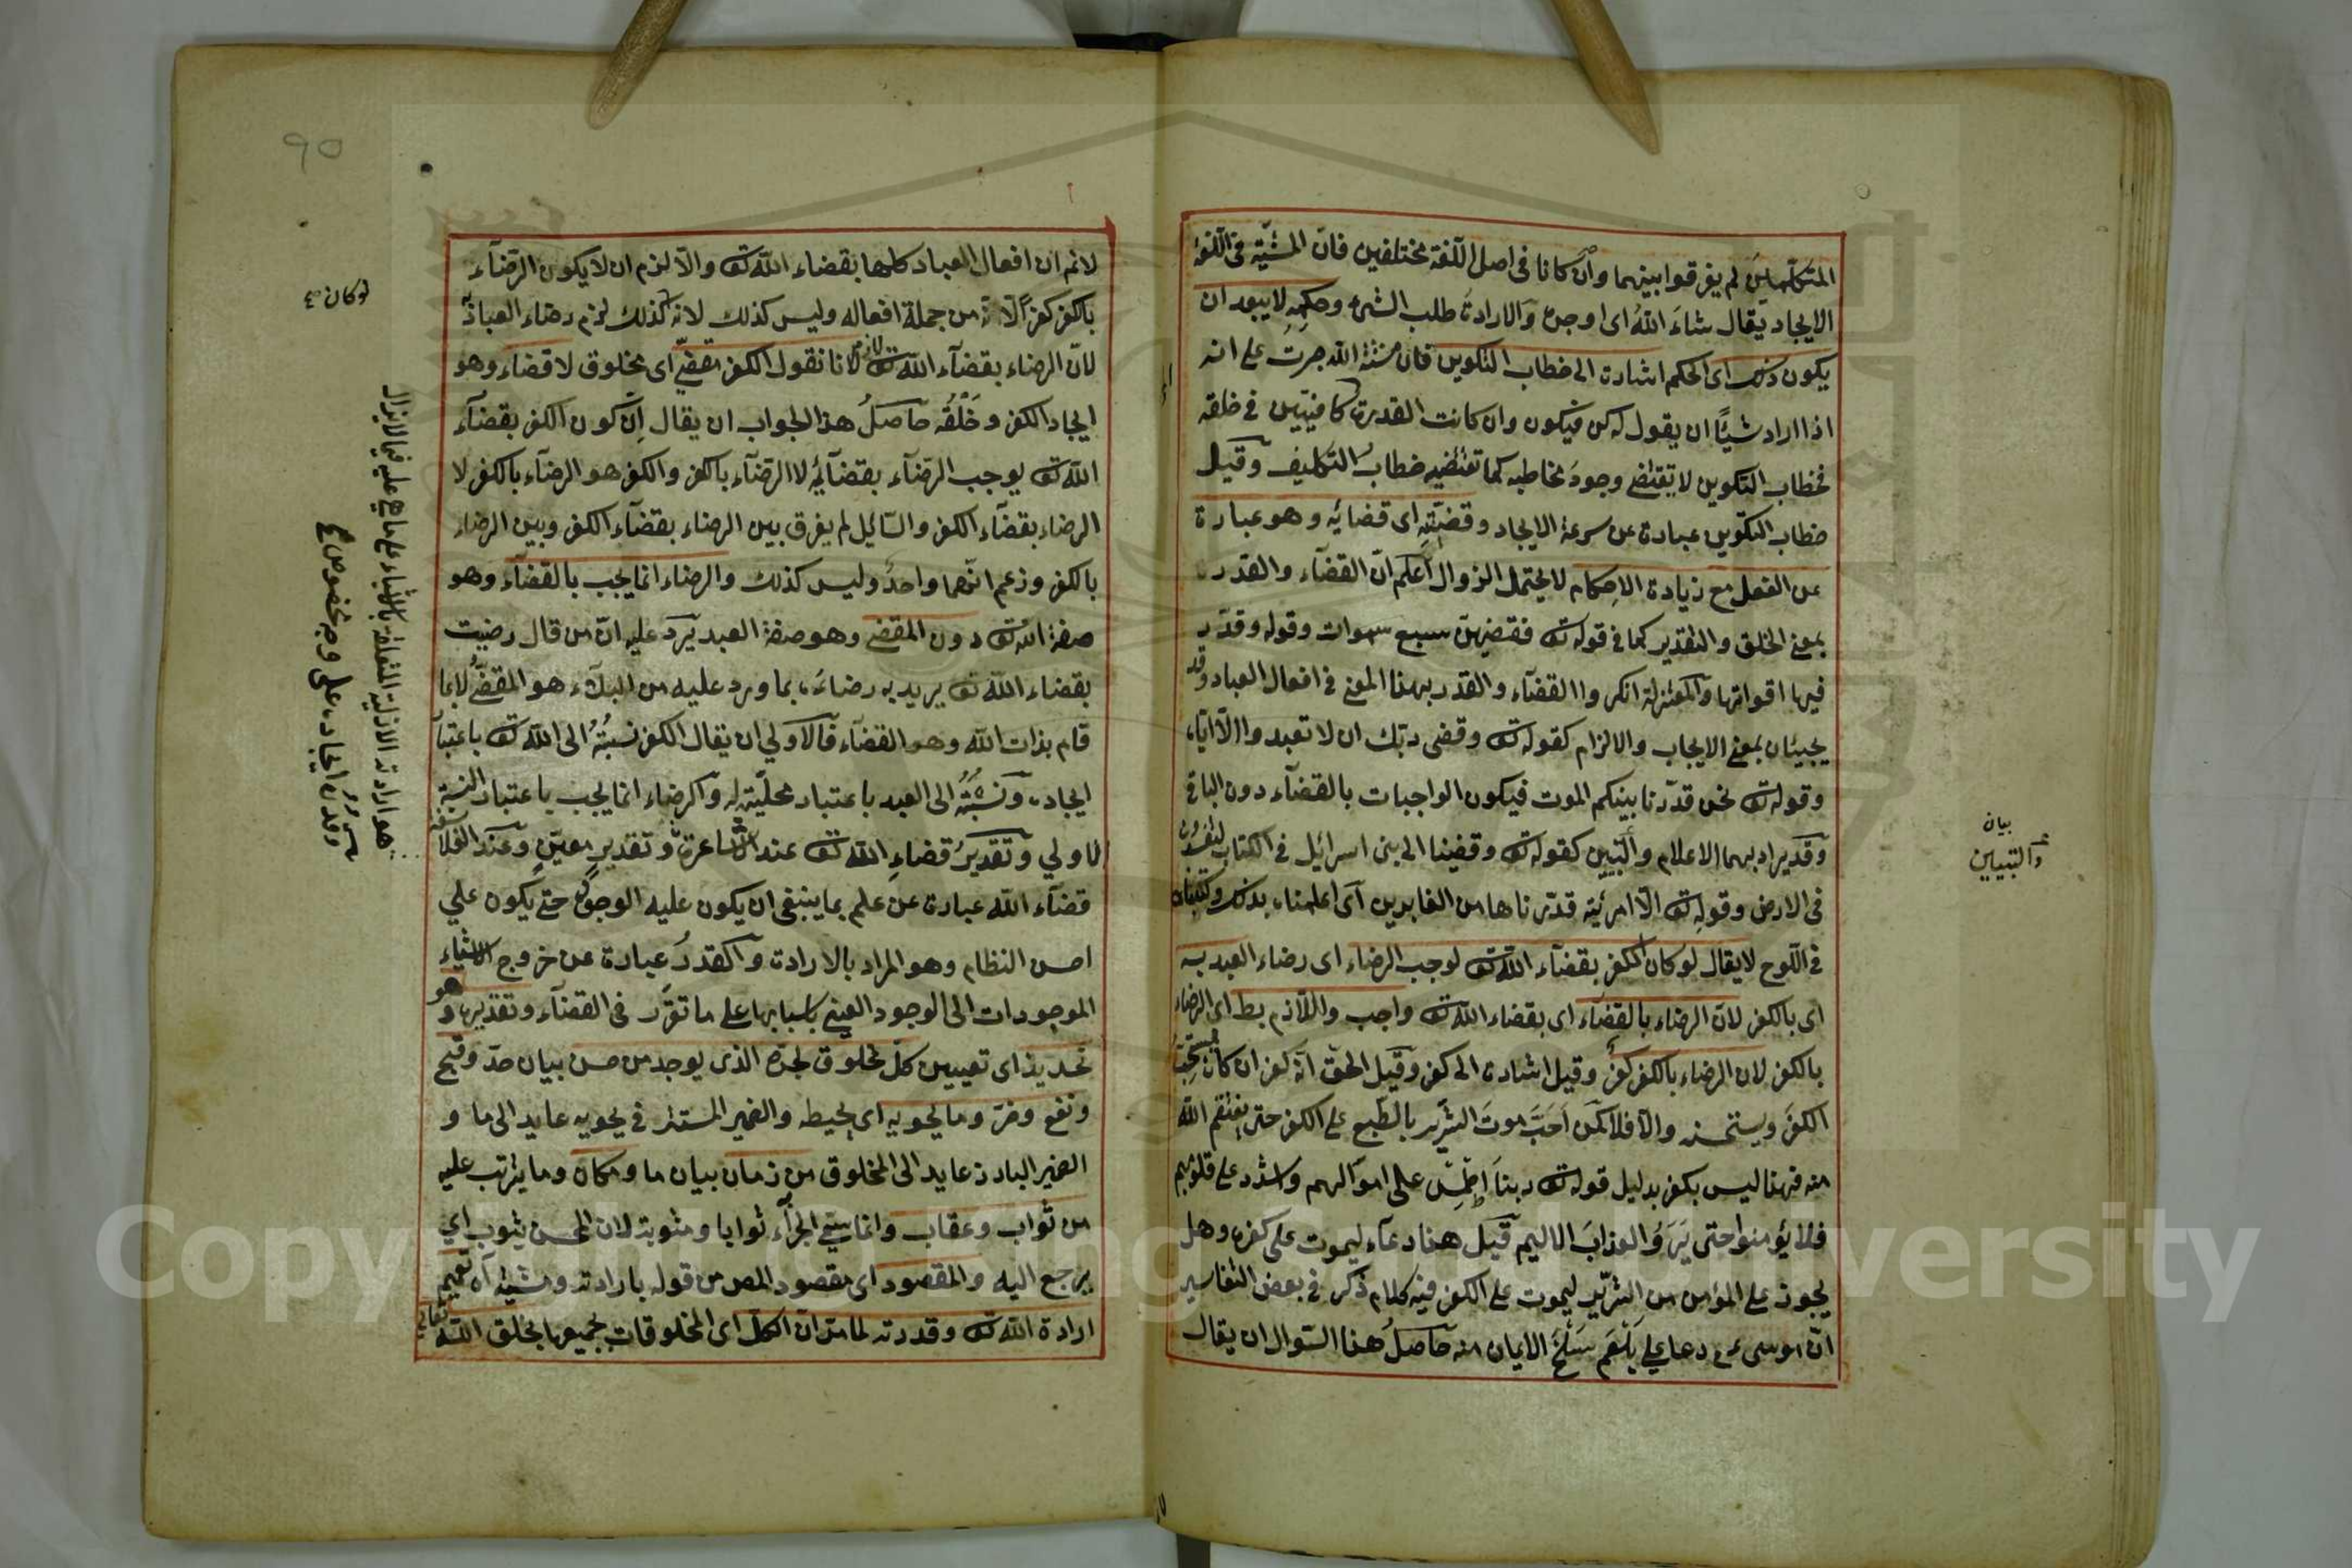 المتكلمين لم يفرقوا بينهما وان كانا في اصل اللغة مختلفين فان المشيّة في اللغة
الايجاد يقال شاء الله اى اوجده والارادة طلب الشئ وحكمه لا يبعد ان
يكون ذلك اى الحكم اشارة الى خطاب التكوين فان سنة الله جرت على انه
اذا اراد شيئًا ان يقول له كن فيكون وان كانت القدرة كافيتين في خلقه
فخطاب التكوين لا يقتضى وجود مخاطبه كما تقتضيه خطاب التكليف وقيل
خطاب التكوين عبارة عن سرعة الايجاد وقضيّته اى قضائه وهو عبارة
عن الفعل مع زيادة الاحكام لا يحتمل الزوال اعلم انّ القضآء والقدر
بمعنى الخلق والتقدير كما في قوله تع فقضيهنّ سبع سموات وقوله وقدّر
فيها اقواتها والمعتزلة انكروا القضآء والقدر بهذا المعنى في افعال العباد وقد
يجيئان بمعنى الايجاب والالزام كقوله تع وقضى ربّك ان لا تعبدوا الّا ايّاه
وقوله تع نحن قدّرنا بينكم الموت فيكون الواجبات بالقضآء دون الباقى
وقد يراد بهما الاعلام والتبيين كقوله تع وقضينا الى بنى اسرائيل في الكتاب لتفسدن
في الارض وقوله تع الّا امرئته قدّرناها من الغابرين اى اعلمناه بذلك وكتبناه
في اللوح لا يقال لو كان الكفر بقضآء الله تع لوجب الرضاء اى رضاء العبد به
اى بالكفر لانّ الرضاء بالقضآء اى بقضاء الله تع واجب واللازم بط اى الرضاء
بالكفر لان الرضاء بالكفر كفر وقيل اشارة الى كفر وقيل الحق انّه كفر ان كان يستحبّ
الكفر ويستحسنه والّا فلا كمن احبّ موت الشرّير بالطبع على الكفر حتى ينتقم الله
منه فهذا ليس بكفر بدليل قوله تع ربنا اطمس على اموالهم واشدد على قلوبهم
فلا يؤمنوا حتى يروا العذاب الاليم قيل هذا دعاء ليموت على كفره وهل
يجوز على المؤمن من الشرّير ليموت على الكفر فيه كلام ذكر في بعض التفاسير
انّ موسى عم دعا على بلعم سلخ الايمان منه حاصل هذا السؤال ان يقال
بيان
والتبيين
لانم ان افعال العباد كلها بقضاء الله تع والّا لزم ان لا يكون الرضآء
بالكفر كفرًا لانّه من جملة افعاله وليس كذلك لانه لو كان كذلك لزم رضاء العباد به
لانّ الرضاء بقضآء الله تع لازم لانا نقول الكفر مقضىّ اى مخلوق لا قضاء وهو
ايجاد الكفر وخلقه حاصل هذا الجواب ان يقال انّ كون الكفر بقضآء
الله تع يوجب الرضآء بقضآئه لا الرضآء بالكفر والكفر هو الرضآء بالكفر لا
الرضاء بقضآء الكفر والسّائل لم يفرق بين الرضاء بقضآء الكفر وبين الرضاء
بالكفر وزعم انّهما واحد وليس كذلك والرضاء انما يجب بالقضآء وهو
صفة الله تع دون المقضى وهو صفة العبد يرد عليه انّ من قال رضيت
بقضاء الله تع يريد به رضاءه بما ورد عليه من البلآء هو المقضىّ لا بما
قام بذات الله وهو القضآء فالاولي ان يقال الكفر نسبته الى الله تع باعتبار
ايجاده ونسبته الى العبد باعتبار محلّيته له والرضاء انما يجب باعتبار النسبة
الاولي وتقدير قضاء الله تع عند الاشاعرة وتقدير معيّن وعند الفلاسفة
قضآء الله عبارة عن علم بما ينبغى ان يكون عليه الوجود حتى يكون علي
احسن النظام وهو المراد بالارادة والقدر عبارة عن خروج الاشياء
الموجودات الى الوجود العينى باسبابها على ما تقرّر في القضآء وتقديره وهو
تحديد اى تعيين كلّ مخلوق لحدّه الذى يوجد من حسن بيان حدّ وقبح
ونفع وضرّ وما يحويه اى يحيطه والضمير المستتر في يحويه عايد الى ما و
الضمير البارز عايد الى المخلوق من زمان بيان ما ومكان وما يترتب عليه
من ثواب وعقاب وانما سمّى الجزآء ثوابا ومثوبة لان المحسن يثوب اي
يرجع اليه والمقصود اى مقصود المص من قوله بارادته ومشيّته آه تعميم
ارادة الله تع وقدرته لما مرّ ان الكل اى المخلوقات جميعها بخلق الله تعالى
لو كان صح
هو ارادته الازلية المتعلقة بالاشياء على ما هي عليه فيما لا يزال
وقدره ايجاده على وجه مخصوص